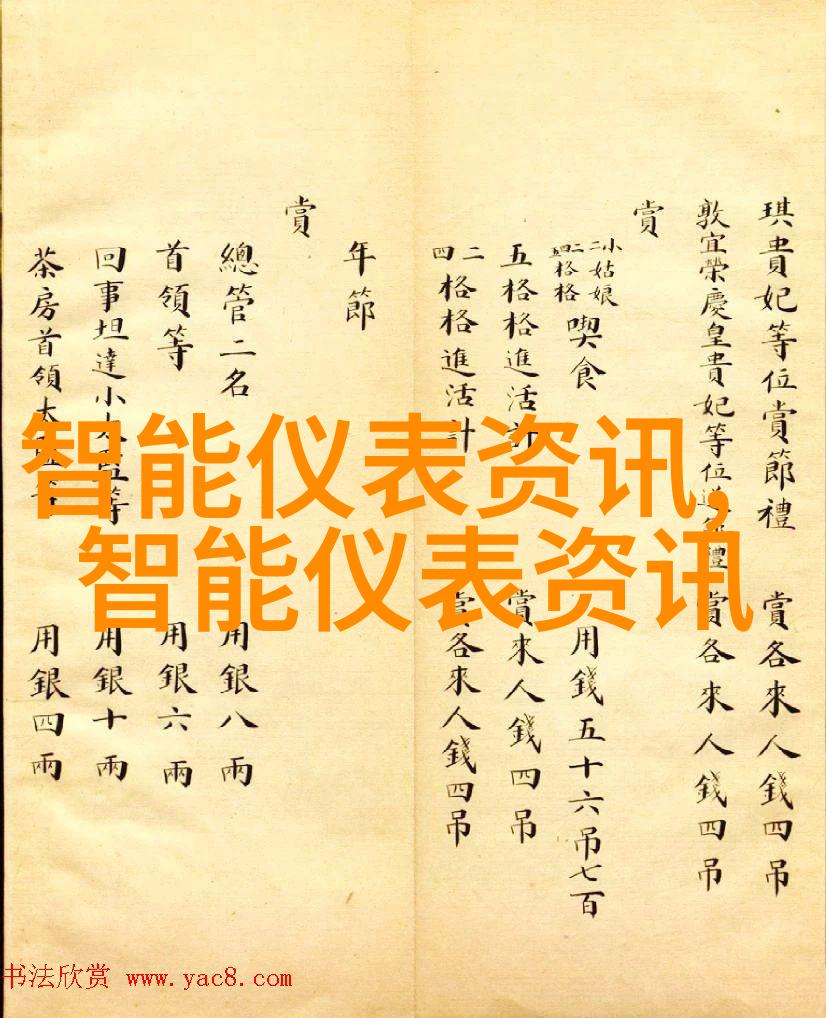 琪貴妃等位賞節禮 賞各來人錢四吊
敦宜榮慶皇貴妃等位進節禮 賞各來人錢四吊
賞
小姑娘
二二格格
四格格
喫食 用錢五十六吊七百
五格格進活計 賞來人錢四吊
二
四
格格進活計 賞各來人錢四吊
年節
賞
總管二名 用銀八兩
首領等 用銀六兩
回事坦達小太監等 用銀十兩
茶房首領太監等 用銀四兩
智能仪表资讯,
智能仪表资讯
书法欣赏 www.yac8.com